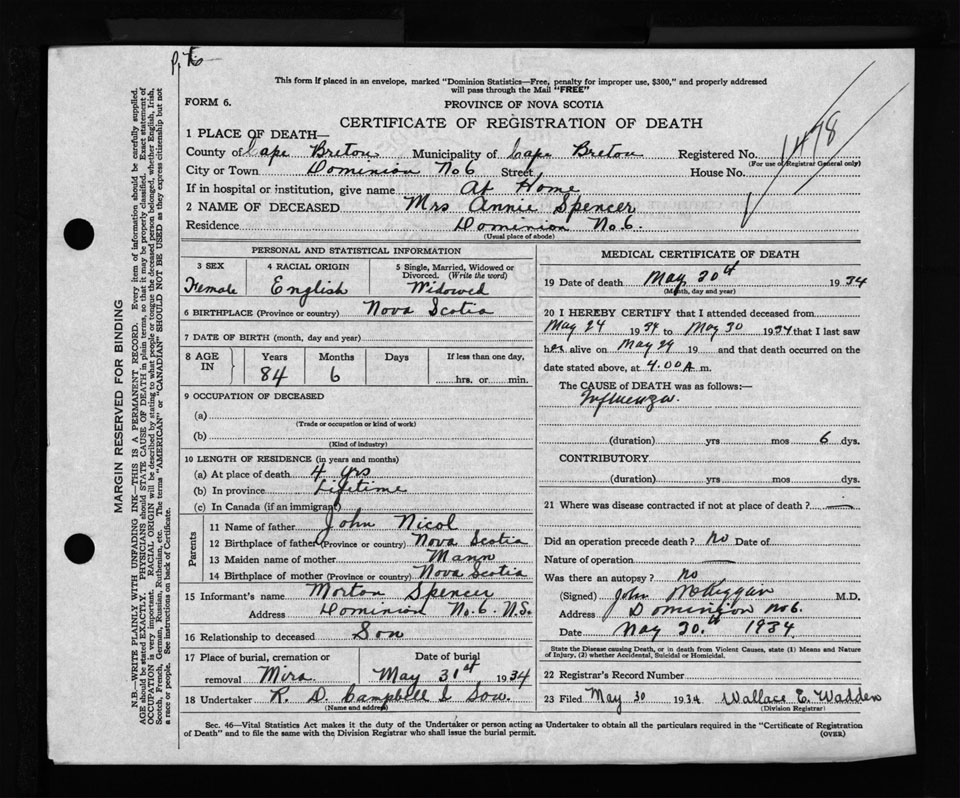 This form if placed in an envelope, marked "Dominion Statistics—Free, penalty for improper use, $300," and properly addressed
will pass through the Mail "FREE"
FORM 6.
PROVINCE OF NOVA SCOTIA
CERTIFICATE OF REGISTRATION OF DEATH
1478
1 PLACE OF DEATH—
County of Cape Breton Municipality of Cape Breton Registered No.
(For use of Registrar General only)
City or Town Dominion No 6 Street House No.
If in hospital or institution, give name At Home
2 NAME OF DECEASED Mrs Annie Spencer
Residence Dominion No. 6.
(Usual place of abode)
PERSONAL AND STATISTICAL INFORMATION
3 SEX Female
4 RACIAL ORIGIN English
5 Single, Married, Widowed or Divorced. (Write the word) Widowed
6 BIRTHPLACE (Province or country) Nova Scotia
7 DATE OF BIRTH (month, day and year)
8 AGE IN Years 84 Months 6 Days If less than one day, hrs. or min.
9 OCCUPATION OF DECEASED
(a)
(Trade or occupation or kind of work)
(b)
(Kind of industry)
10 LENGTH OF RESIDENCE (in years and months)
(a) At place of death 4 yrs
(b) In province Lifetime
(c) In Canada (if an immigrant)
Parents
11 Name of father John Nicol
12 Birthplace of father (Province or country) Nova Scotia
13 Maiden name of mother Mann
14 Birthplace of mother (Province or country) Nova Scotia
15 Informant's name Morton Spencer
Address Dominion No. 6. N.S.
16 Relationship to deceased Son
17 Place of burial, cremation or removal Mira Date of burial May 31st 1934
18 Undertaker R. D. Campbell & Son.
(Name and address)
MEDICAL CERTIFICATE OF DEATH
19 Date of death May 30th 1934
(Month, day and year)
20 I HEREBY CERTIFY that I attended deceased from
May 24 1934 to May 30 1934 that I last saw
her alive on May 29 19 and that death occurred on the
date stated above, at 4.00 A.m.
The CAUSE OF DEATH was as follows:—
Influenza.
(duration) yrs mos 6 dys.
CONTRIBUTORY
(duration) yrs mos dys.
21 Where was disease contracted if not at place of death? —
Did an operation precede death? No Date of
Nature of operation —
Was there an autopsy? No
(Signed) John McKiggan M.D.
Address Dominion No 6.
Date May 30th 1934
State the Disease causing Death, or in death from Violent Causes, state (1) Means and Nature
of Injury, (2) whether Accidental, Suicidal or Homicidal.
22 Registrar's Record Number
23 Filed May 30 1934 Wallace E. Wadden
(Division Registrar)
Sec. 46—Vital Statistics Act makes it the duty of the Undertaker or person acting as Undertaker to obtain all the particulars required in the "Certificate of Registration
of Death" and to file the same with the Division Registrar who shall issue the burial permit.
(OVER)
MARGIN RESERVED FOR BINDING
N.B.—WRITE PLAINLY WITH UNFADING INK—THIS IS A PERMANENT RECORD. Every item of information should be carefully supplied.
AGE should be stated EXACTLY. PHYSICIANS should STATE CAUSE OF DEATH in plain terms, so that it may be properly classified. Exact statement of
OCCUPATION is very important. RACIAL ORIGIN will be described by stating to what people or tongue the deceased person belonged, whether English, Irish,
Scotch, French, German, Russian, Ruthenian, etc. The terms "AMERICAN" or "CANADIAN" SHOULD NOT BE USED as they express citizenship but not
a race or people. See instructions on back of Certificate.